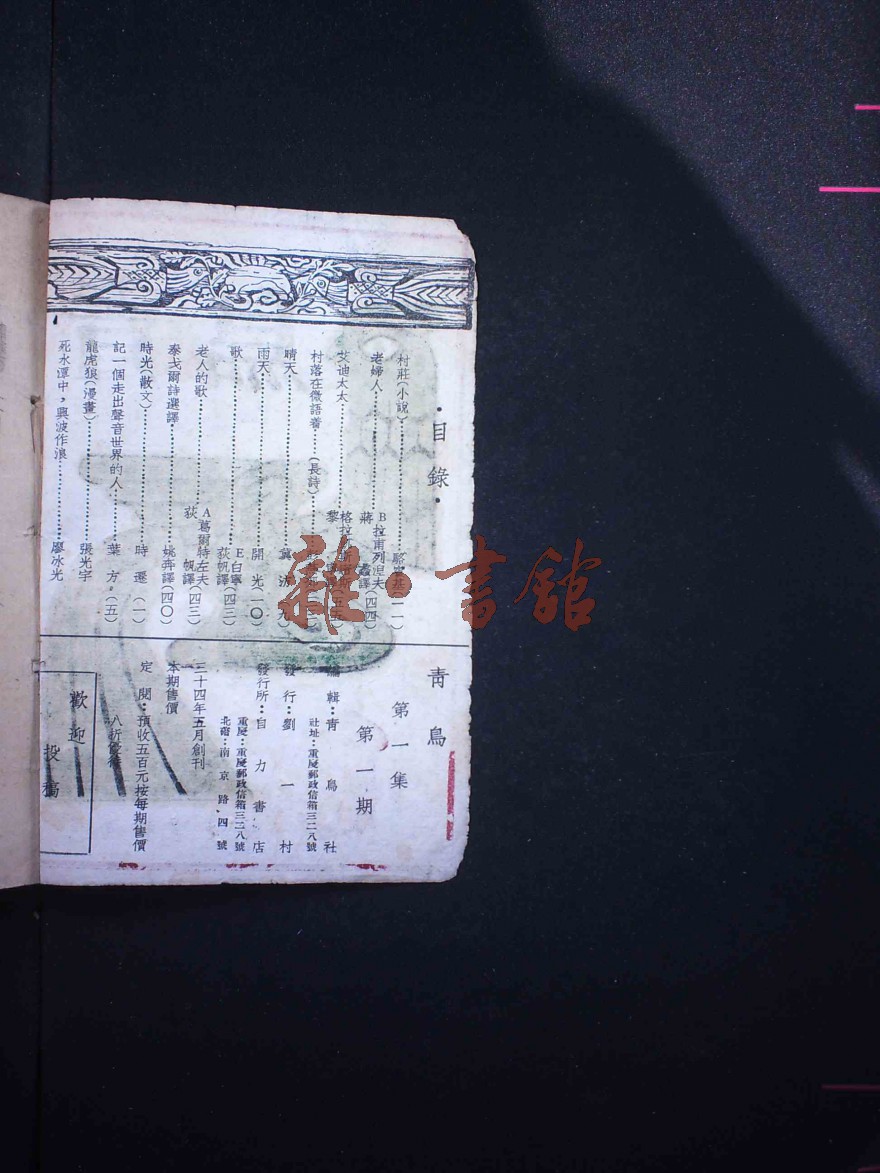 ·目錄·
村莊(小說)………駱賓基(一一)
老婦人………B拉甫列湼夫
蔣 譯(四四)
艾迪太太………
村落在微語着………(長詩)
晴天………冀汸
雨天………開光(一〇)
歌………E白寧
荻帆譯(四三)
老人的歌………A葛爾特左夫
荻帆譯(四三)
泰戈爾詩選譯………姚奔譯(四〇)
時光(散文)………時遷(一)
記一個走出聲音世界的人………葉方。(五)
龍虎狼(漫畫)………張光宇
死水潭中,興波作浪………廖冰光
青鳥
第一集
第一期
編輯:青鳥社
社址:重慶郵政信箱三二八號
發行:劉一村
發行所:自力書店
重慶:重慶郵政信箱三二八號
北碚:南京路四號
三十四年五月創刊
本期售價
定閱:預收五百元按每期售價
八折優待
歡迎
投稿
雜·書館